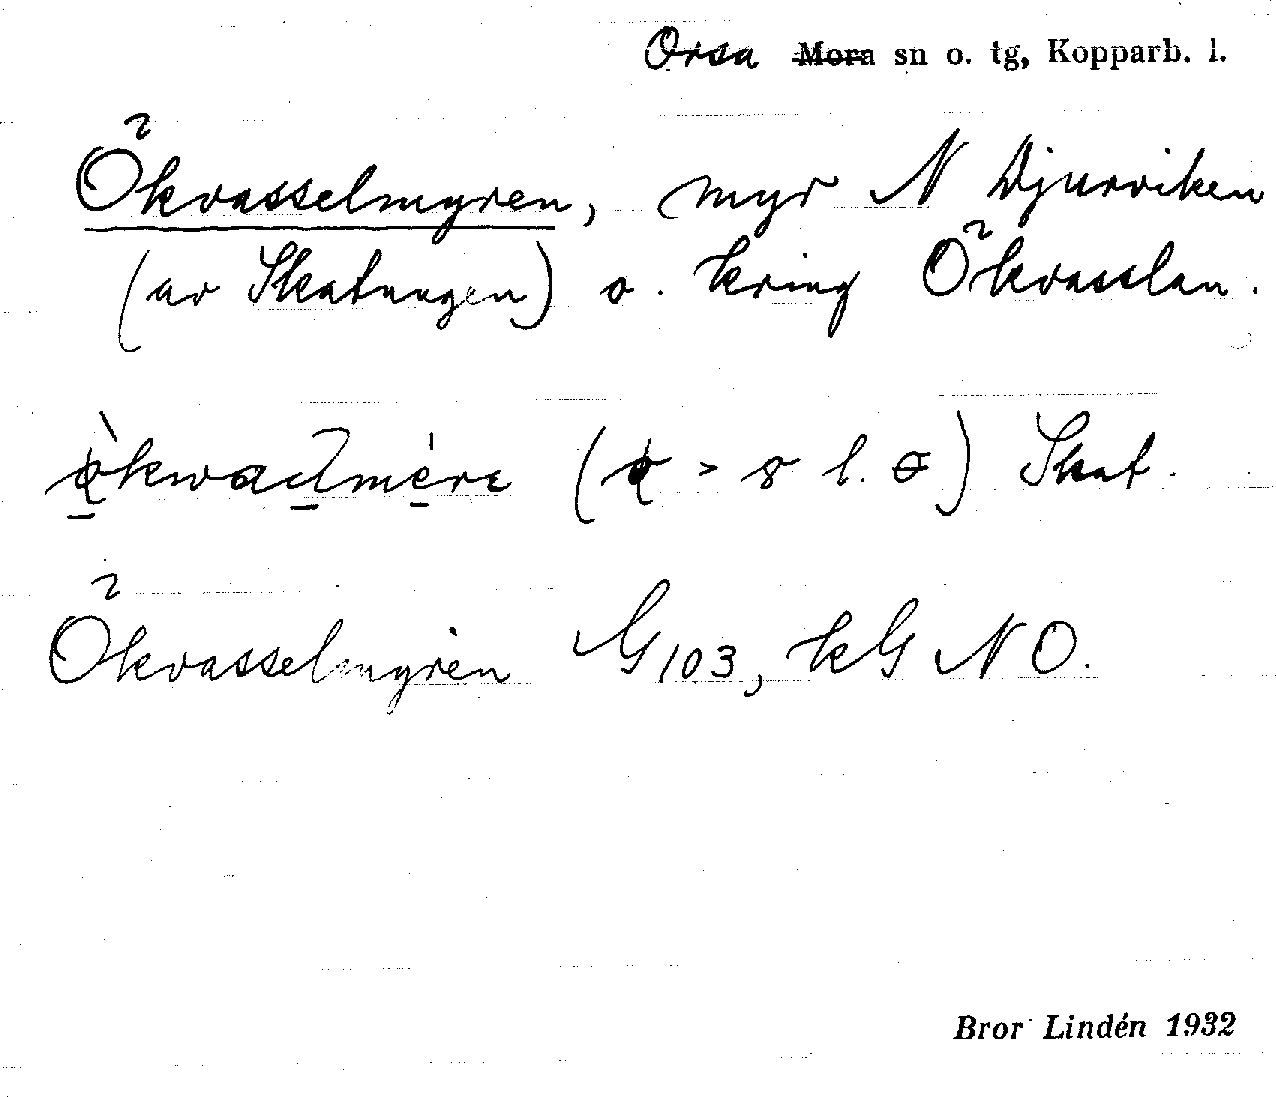 Orsa Mora sn o. tg, Kopparb. l.
Ökvasselmyren, myr N Djurviken
(av Skatungen) o. kring Ökvasslan.
Skat.
Ökvasselmyren G103, kG NO.
Bror Lindén 1932